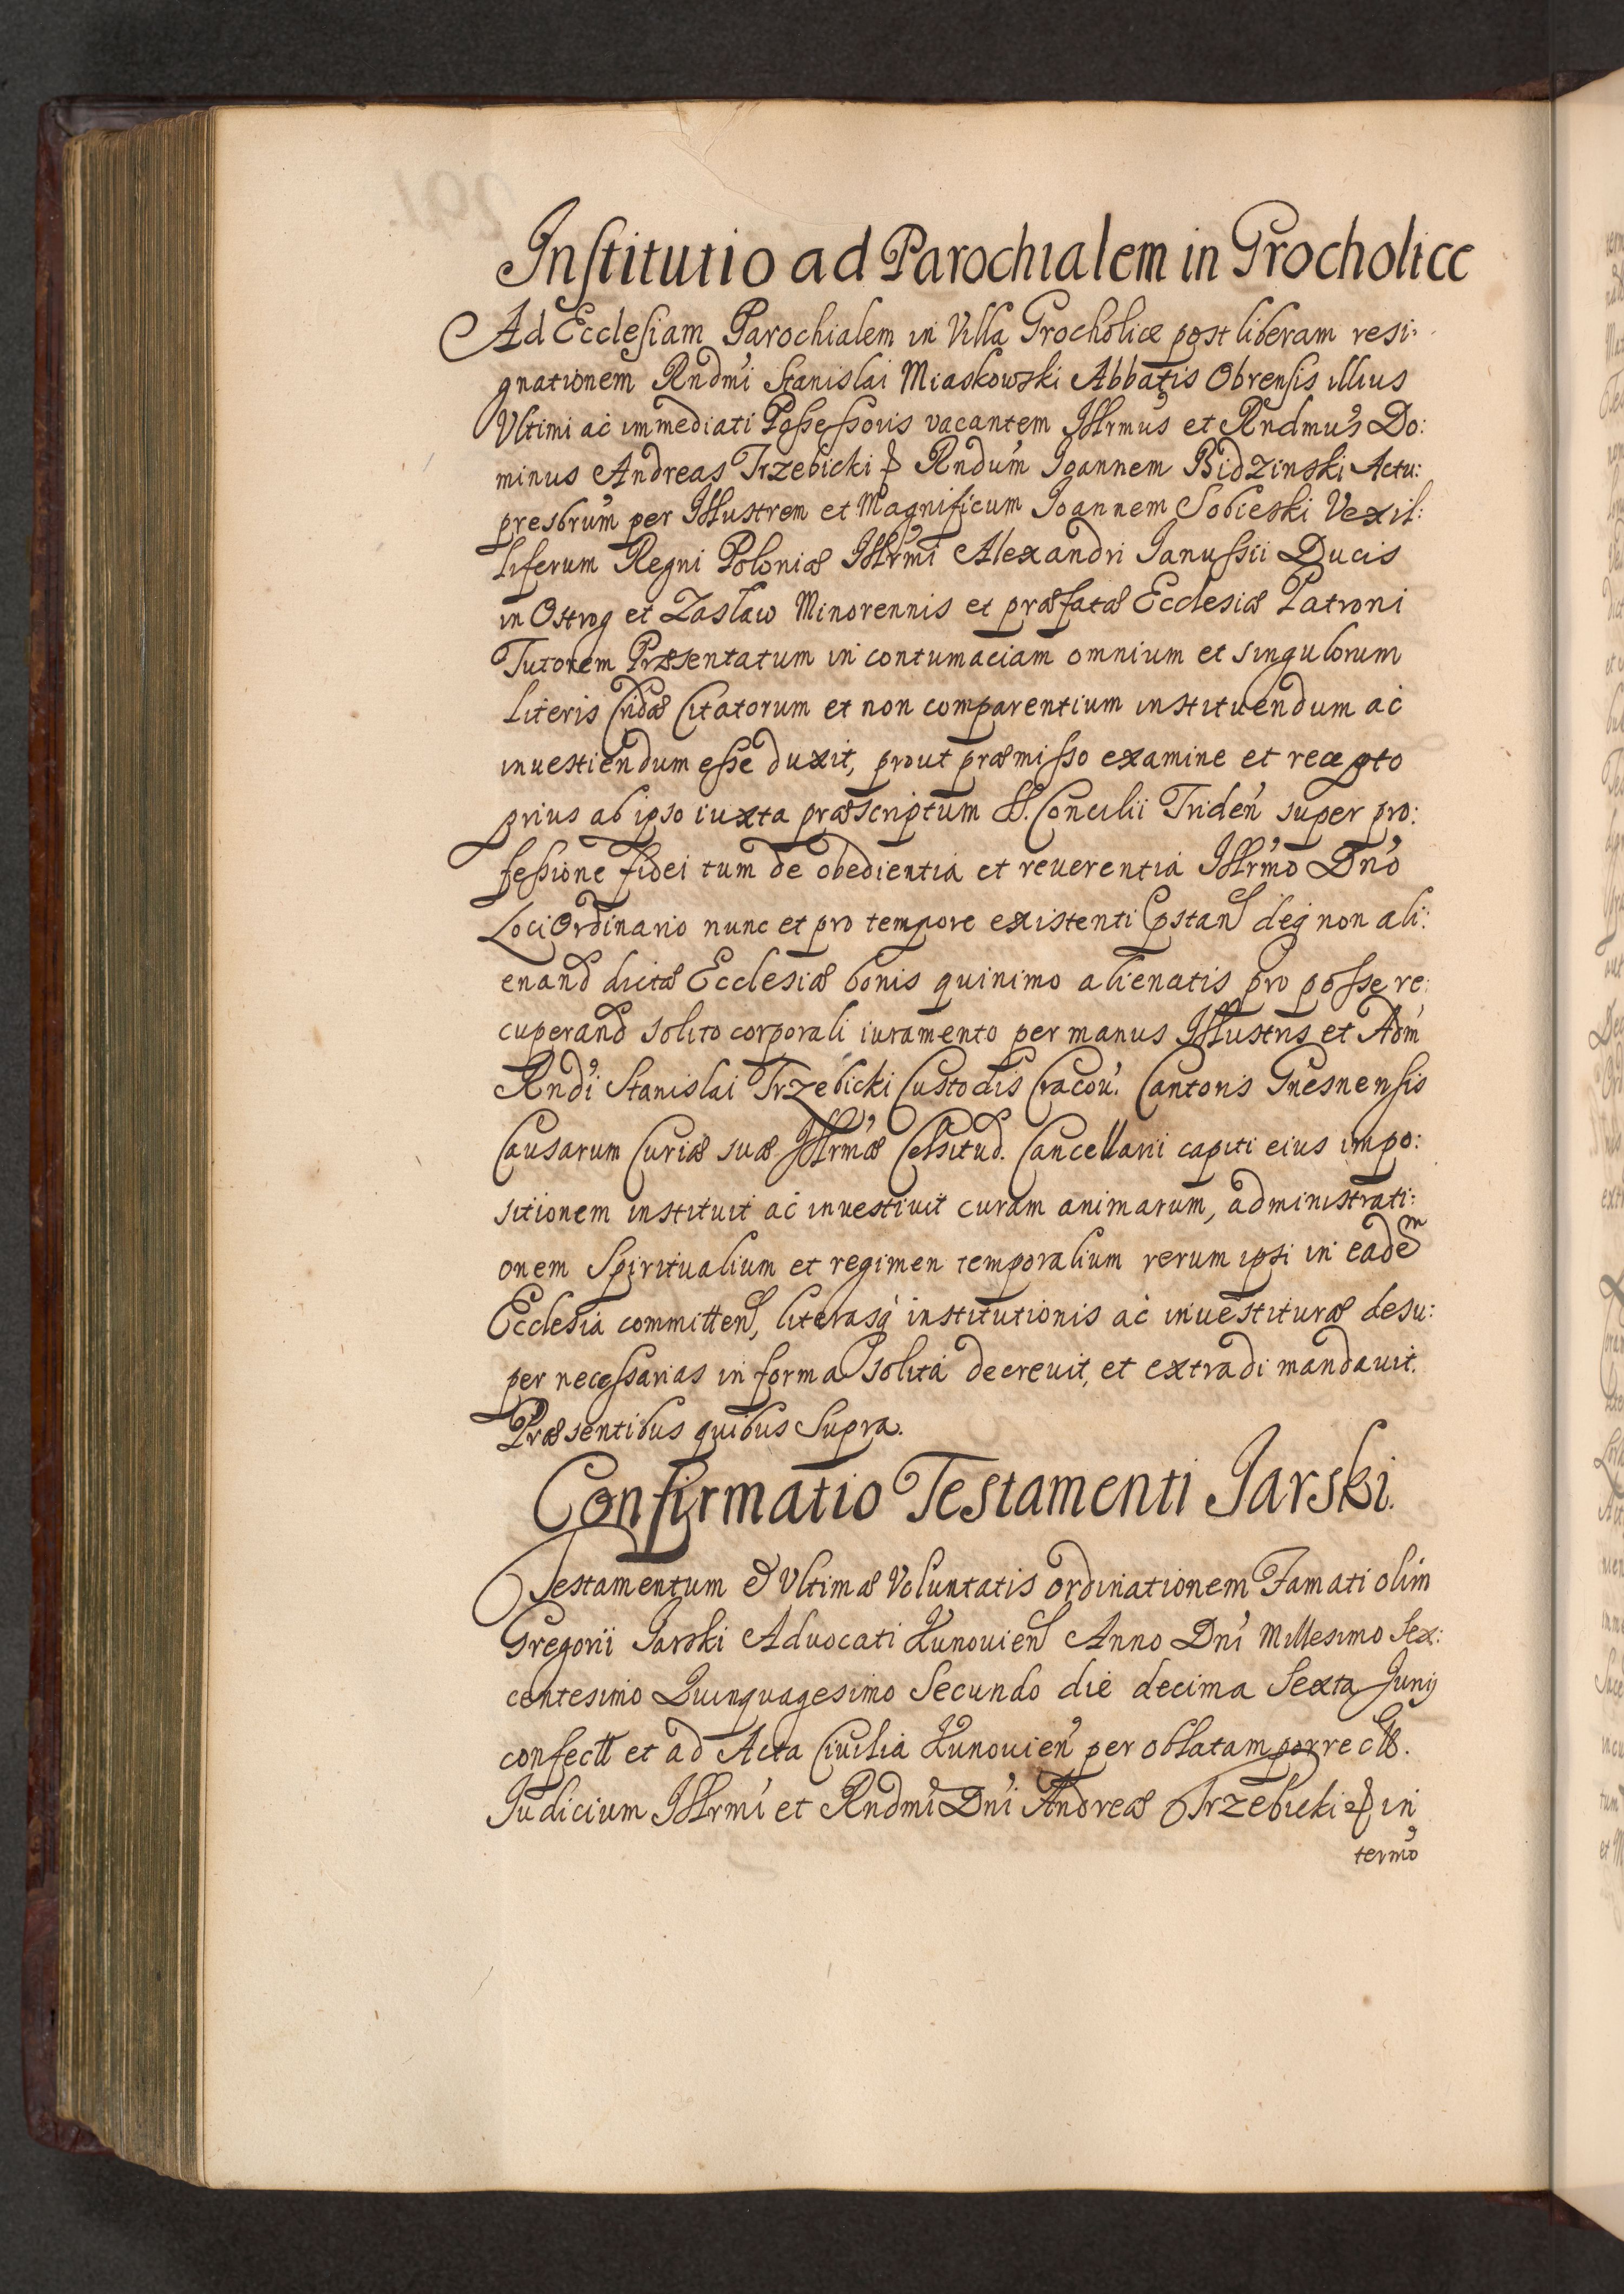 Institutio ad Parochialem in Grocholice
Ad Ecclesiam Parochialem in Villa Grocholice post liberam resi:
gnationem Rndmi Stanislai Miaskowski Abbatis Obrensis illius
Vltimi ac immediati Possessoris vacantem Illrmus et Rndmus Do:
minus Andreas Trzebicki Rndum Ioannem Bidzinski Actu:
presbrum per Illustrem et Magnificum Ioannem Sobieski Vexil:
liferum Regni Poloniæ Illrmi Alexandri Ianussii Ducis
in Ostrog et Zasław Minorennis et præfatæ Ecclesiæ Patroni
Tutorem Præsentatum in contumaciam omnium et singulorum
literis Cridæ Citatorum et non comparentium instituendum ac
inuestiendum esse duxit, prout præmisso examine et recepto
prius ab ipso iuxta præscriptum S. Concilii Triden super pro:
fessione fidei tum de obedientia et reuerentia Illrmo Dno
Loci Ordinario nunc et pro tempore existenti pstan deq non ali:
enand dictæ Ecclesiæ bonis quinimo alienatis pro posse re:
cuperand solito corporali iuramento per manus Illustris et Adm
Rndi Stanislai Trzebicki Custodis Cracou. Cantoris Gnesnensis
Causarum Curiæ suæ Illrmæ Celsitud. Cancellarii capiti eius impo:
sitionem instituit ac inuestiuit curam animarum, administrati:
onem Spiritualium et regimen temporalium rerum ipsi in eadem
Ecclesia committen, literasq institutionis ac inuestituræ desu:
per necessarias in forma solita decreuit, et extradi mandauit.
Præsentibus quibus Supra.
Confirmatio Testamenti Jarski.
Testamentum & Vltimæ Voluntatis ordinationem Famati olim
Gregorii Jarski Aduocati Kunouien Anno Dni Millesimo Sex:
centesimo Quinquagesimo Secundo die decima Sexta Junij
confect et ad Acta Ciuilia Kunouien per oblatam porrect.
Iudicium Illrmi et Rndmi Dni Andreæ Trzebicki in
termo